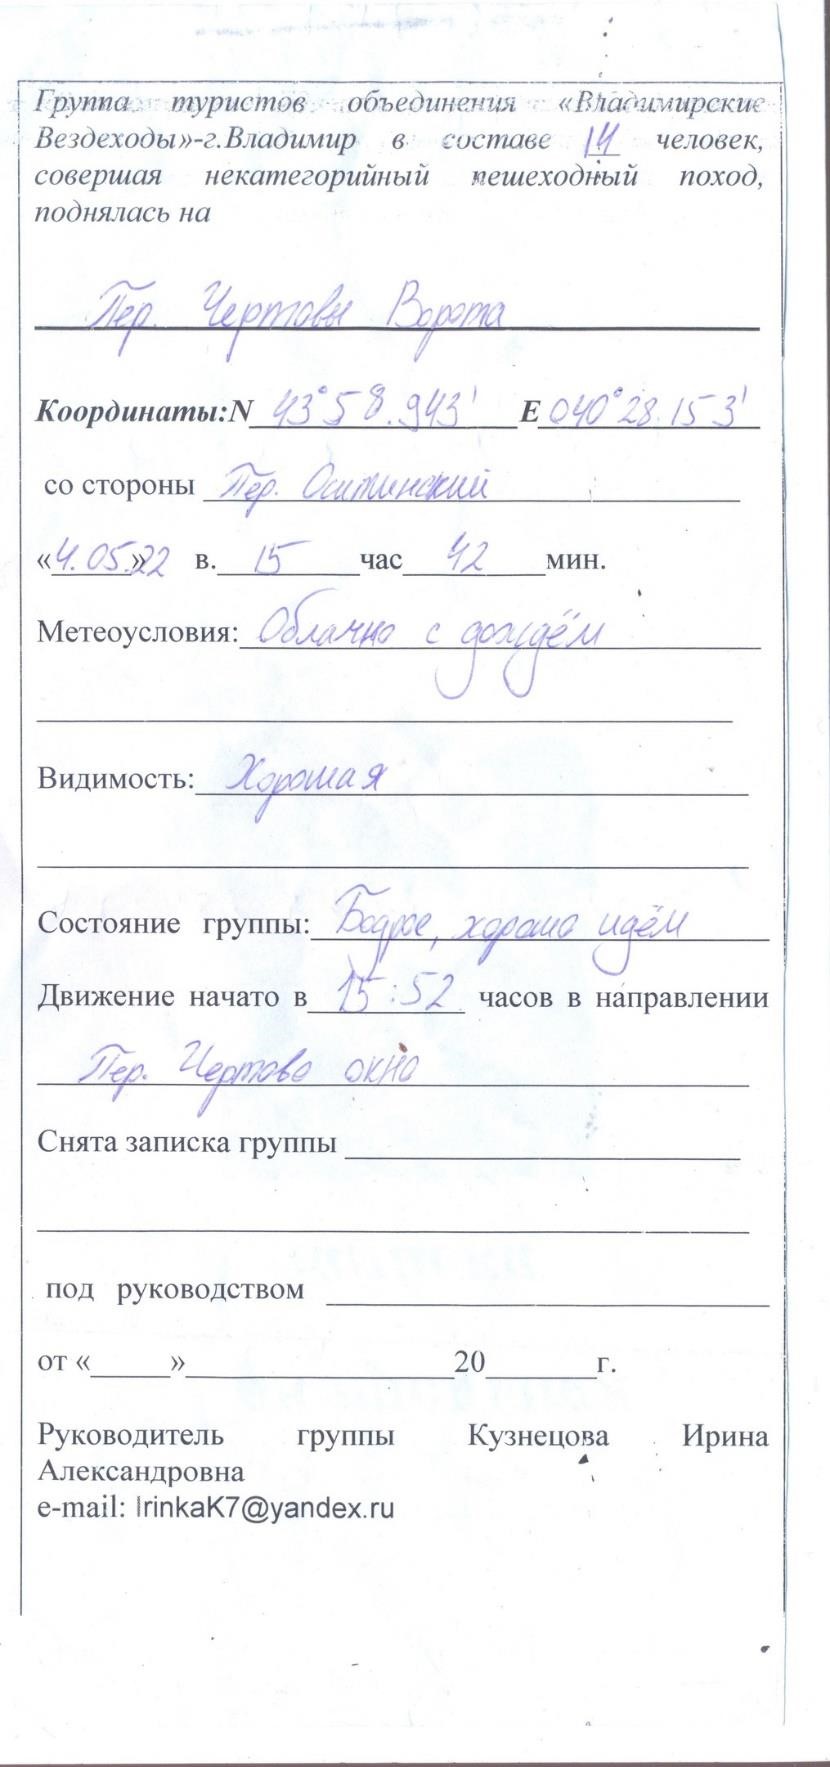 Группа туристов объединения «Владимирские
Вездеходы»-г.Владимир в составе 14 человек,
совершая некатегорийный пешеходный поход,
поднялась на
Пер. Чертовы Ворота
Координаты:N 43°58.943' E 040°28.153'
со стороны Пер. Осиминский
«4.05.22» в. 15 час 42 мин.
Метеоусловия: Облачно с дождём
Видимость: Хорошая
Состояние группы: Бодрое, хорошо идём
Движение начато в 15:52 часов в направлении
Пер. Чертово окно
Снята записка группы
под руководством
от «____»____________20____г.
Руководитель группы Кузнецова Ирина
Александровна
e-mail: IrinkaK7@yandex.ru